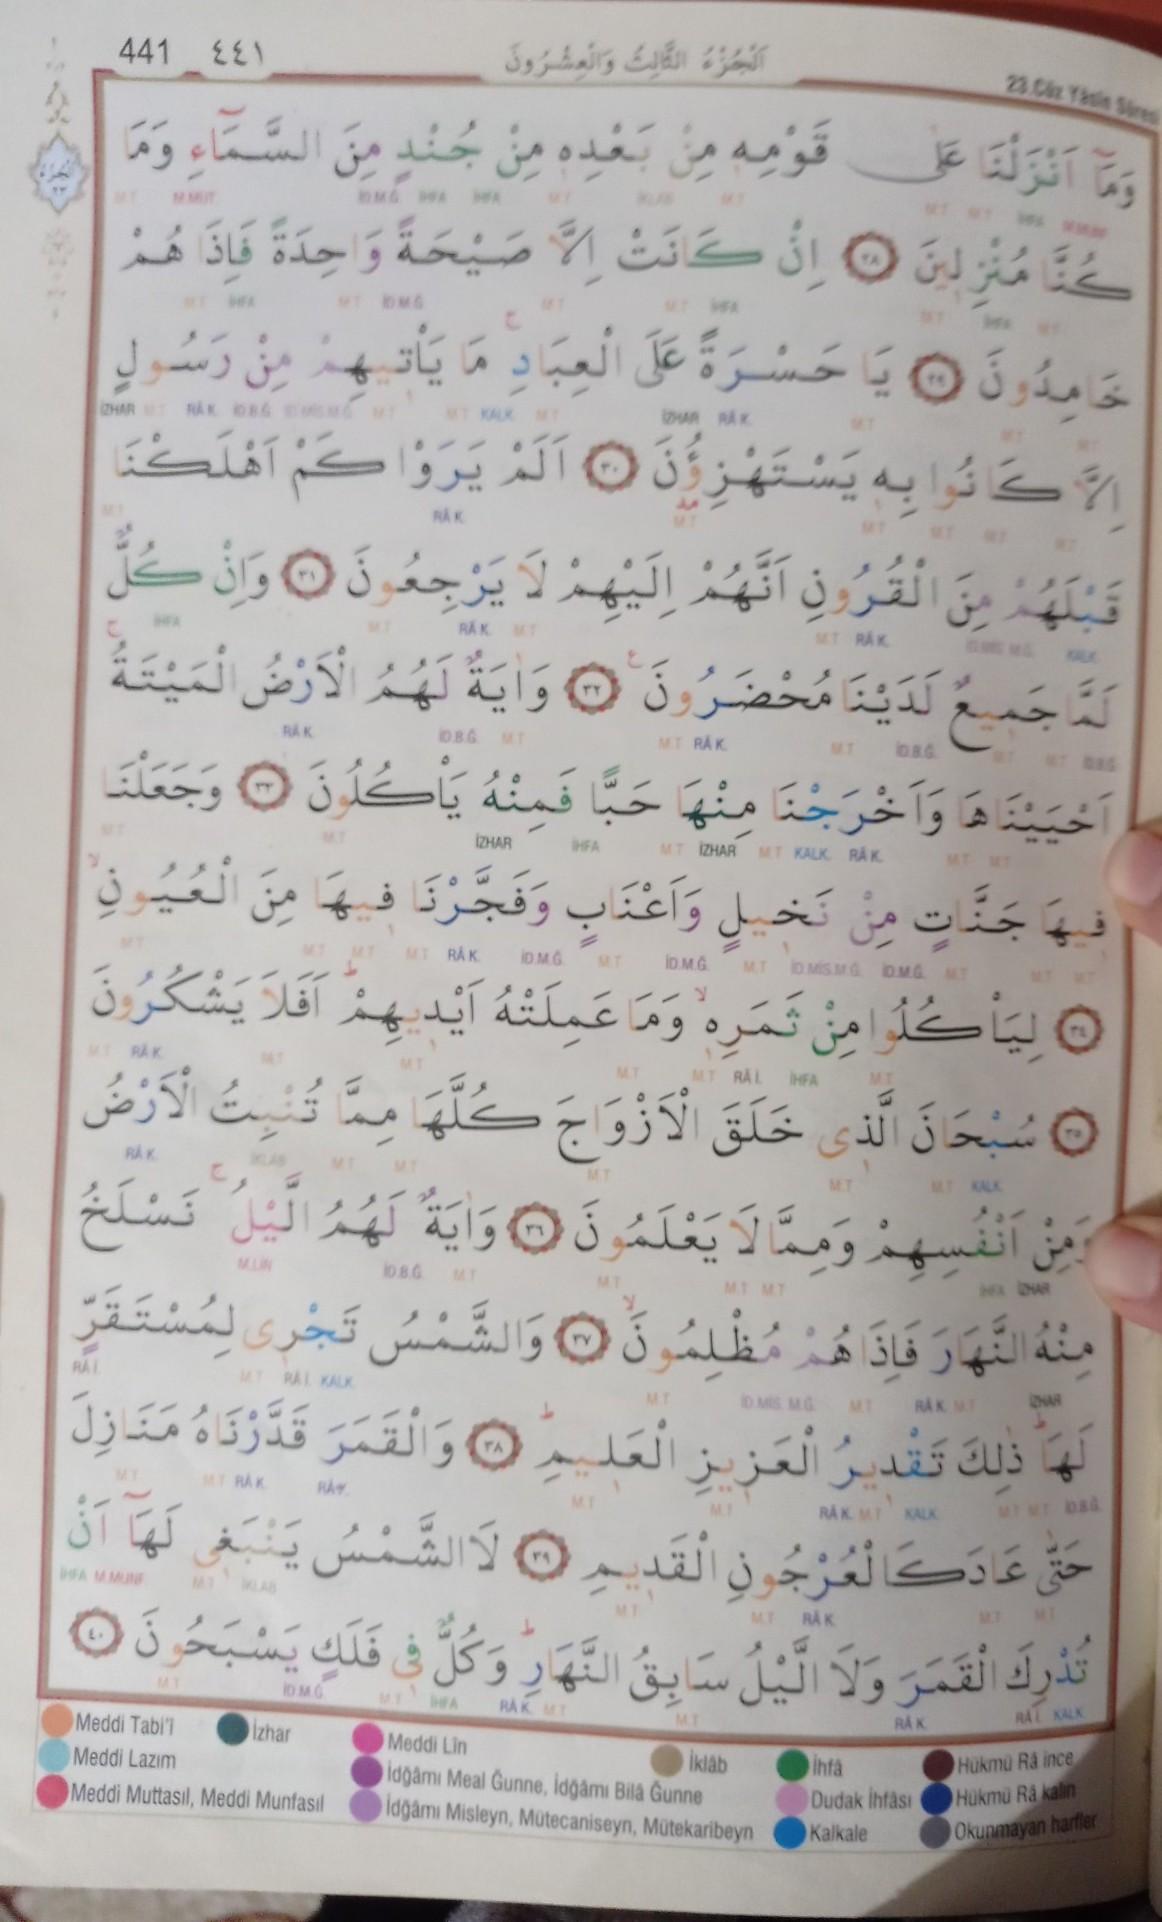 441 ٤٤١ اَلْجُزْءُ الثَّالِثُ وَالْعِشْرُونَ 23.Cüz Yâsin Sûresi
وَمَٓا اَنْزَلْنَا عَلٰى قَوْمِه۪ مِنْ بَعْدِه۪ مِنْ جُنْدٍ مِنَ السَّمَٓاءِ وَمَا
كُنَّا مُنْزِل۪ينَ ﴿٢٨﴾ اِنْ كَانَتْ اِلَّا صَيْحَةً وَاحِدَةً فَاِذَا هُمْ
خَامِدُونَ ﴿٢٩﴾ يَا حَسْرَةً عَلَى الْعِبَادِۚ مَا يَأْت۪يهِمْ مِنْ رَسُولٍ
اِلَّا كَانُوا بِه۪ يَسْتَهْزِؤُ۫نَ ﴿٣٠﴾ اَلَمْ يَرَوْا كَمْ اَهْلَكْنَا
قَبْلَهُمْ مِنَ الْقُرُونِ اَنَّهُمْ اِلَيْهِمْ لَا يَرْجِعُونَ ﴿٣١﴾ وَاِنْ كُلٌّ
لَمَّا جَم۪يعٌ لَدَيْنَا مُحْضَرُونَ۟ ﴿٣٢﴾ وَاٰيَةٌ لَهُمُ الْاَرْضُ الْمَيْتَةُۚ
اَحْيَيْنَاهَا وَاَخْرَجْنَا مِنْهَا حَبًّا فَمِنْهُ يَأْكُلُونَ ﴿٣٣﴾ وَجَعَلْنَا
ف۪يهَا جَنَّاتٍ مِنْ نَخ۪يلٍ وَاَعْنَابٍ وَفَجَّرْنَا ف۪يهَا مِنَ الْعُيُونِۙ
﴿٣٤﴾ لِيَأْكُلُوا مِنْ ثَمَرِه۪ۙ وَمَا عَمِلَتْهُ اَيْد۪يهِمْۜ اَفَلَا يَشْكُرُونَ
﴿٣٥﴾ سُبْحَانَ الَّذ۪ى خَلَقَ الْاَزْوَاجَ كُلَّهَا مِمَّا تُنْبِتُ الْاَرْضُ
وَمِنْ اَنْفُسِهِمْ وَمِمَّا لَا يَعْلَمُونَ ﴿٣٦﴾ وَاٰيَةٌ لَهُمُ الَّيْلُۚ نَسْلَخُ
مِنْهُ النَّهَارَ فَاِذَا هُمْ مُظْلِمُونَۙ ﴿٣٧﴾ وَالشَّمْسُ تَجْر۪ى لِمُسْتَقَرٍّ
لَهَاۜ ذٰلِكَ تَقْد۪يرُ الْعَز۪يزِ الْعَل۪يمِۜ ﴿٣٨﴾ وَالْقَمَرَ قَدَّرْنَاهُ مَنَازِلَ
حَتّٰى عَادَ كَالْعُرْجُونِ الْقَد۪يمِ ﴿٣٩﴾ لَا الشَّمْسُ يَنْبَغ۪ى لَهَٓا اَنْ
تُدْرِكَ الْقَمَرَ وَلَا الَّيْلُ سَابِقُ النَّهَارِۜ وَكُلٌّ ف۪ى فَلَكٍ يَسْبَحُونَ ﴿٤٠﴾
Meddi Tabi'î İzhar Meddi Lîn İklâb İhfâ Hükmü Râ ince
Meddi Lazım İdğâmı Meal Ğunne, İdğâmı Bilâ Ğunne Dudak İhfâsı Hükmü Râ kalın
Meddi Muttasıl, Meddi Munfasıl İdğâmı Misleyn, Mütecaniseyn, Mütekaribeyn Kalkale Okunmayan harfler